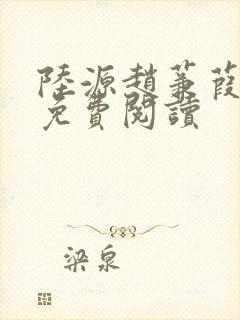 陸源趙蒹葭
免費閱讀
梁泉